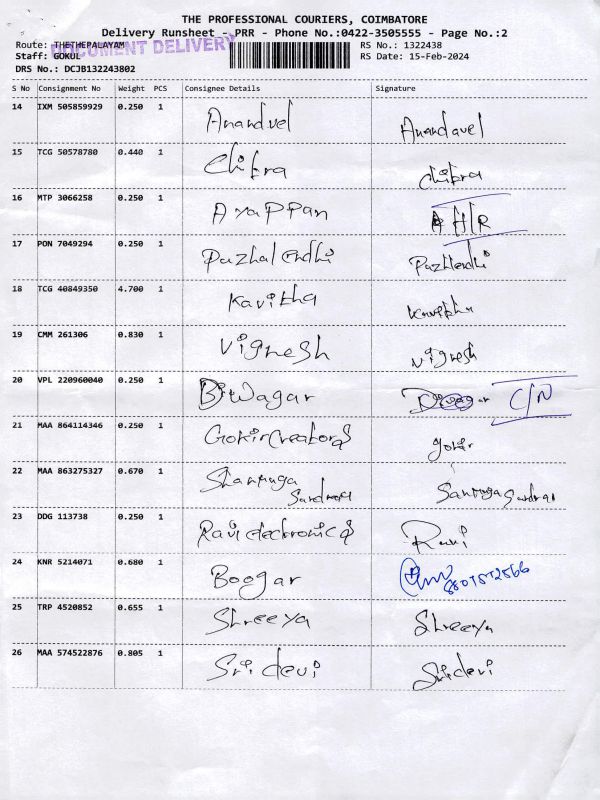 THE PROFESSIONAL COURIERS, COIMBATORE
Delivery Runsheet - PRR - Phone No.:0422-3505555 - Page No.:2
Route: THETHEPALAYAM RS No.: 1322438
DOCUMENT DELIVERY
Staff: GOKUL RS Date: 15-Feb-2024
DRS No.: DCJB132243802
S No Consignment No Weight PCS Consignee Details Signature
14 IXM 505859929 0.250 1 Anandvel Anandavel
15 TCG 50578780 0.440 1 Chitra Chitra
16 MTP 3066258 0.250 1 Ayappan
17 PON 7049294 0.250 1 Pazhalendhi Pazhlendhi
18 TCG 40849350 4.700 1 Kavitha Kavitha
19 CMM 261306 0.830 1 Vignesh Vignesh
20 VPL 220960040 0.250 1 Diwagar C/N
21 MAA 864114346 0.250 1 Gokir Creators gokir
22 MAA 863275327 0.670 1 Shanmuga
23 DDG 113738 0.250 1 Ravi electronics Ravi
24 KNR 5214071 0.680 1 Boogar
25 TRP 4520852 0.655 1 Shreeya Shreeya
26 MAA 574522876 0.805 1 Sri devi Sridevi